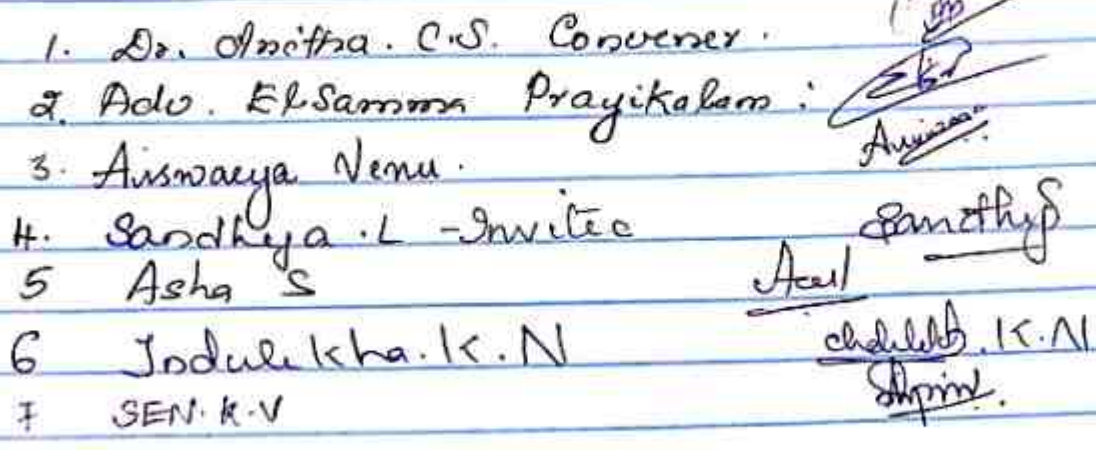 1. Dr. Anitha. C.S. Convener.
2. Adv. Elsamma Prayikalam :
3. Aiswarya Venu.
4. Sandhya. L - Invitee
5 Asha S
6 Indulekha. K. N K.N
7 SEN. K. V